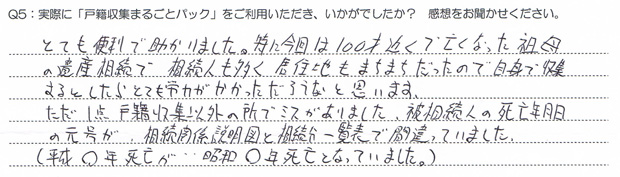 Q5：実際に「戸籍収集まるごとパック」をご利用いただき、いかがでしたか？ 感想をお聞かせください。
とても便利で助かりました。特に今回は100才近くで亡くなった祖母
の遺産相続で 相続人も多く 居住地もまちまちだったので自身で収集
するとしたらとても労力がかかっただろうなと思います。
ただ1点 戸籍収集以外の所でミスがありました。被相続人の死亡年月日
の元号が、相続関係説明図と相続分一覧表で間違っていました。
(平成〇年死亡が‥昭和〇年死亡となっていました。)